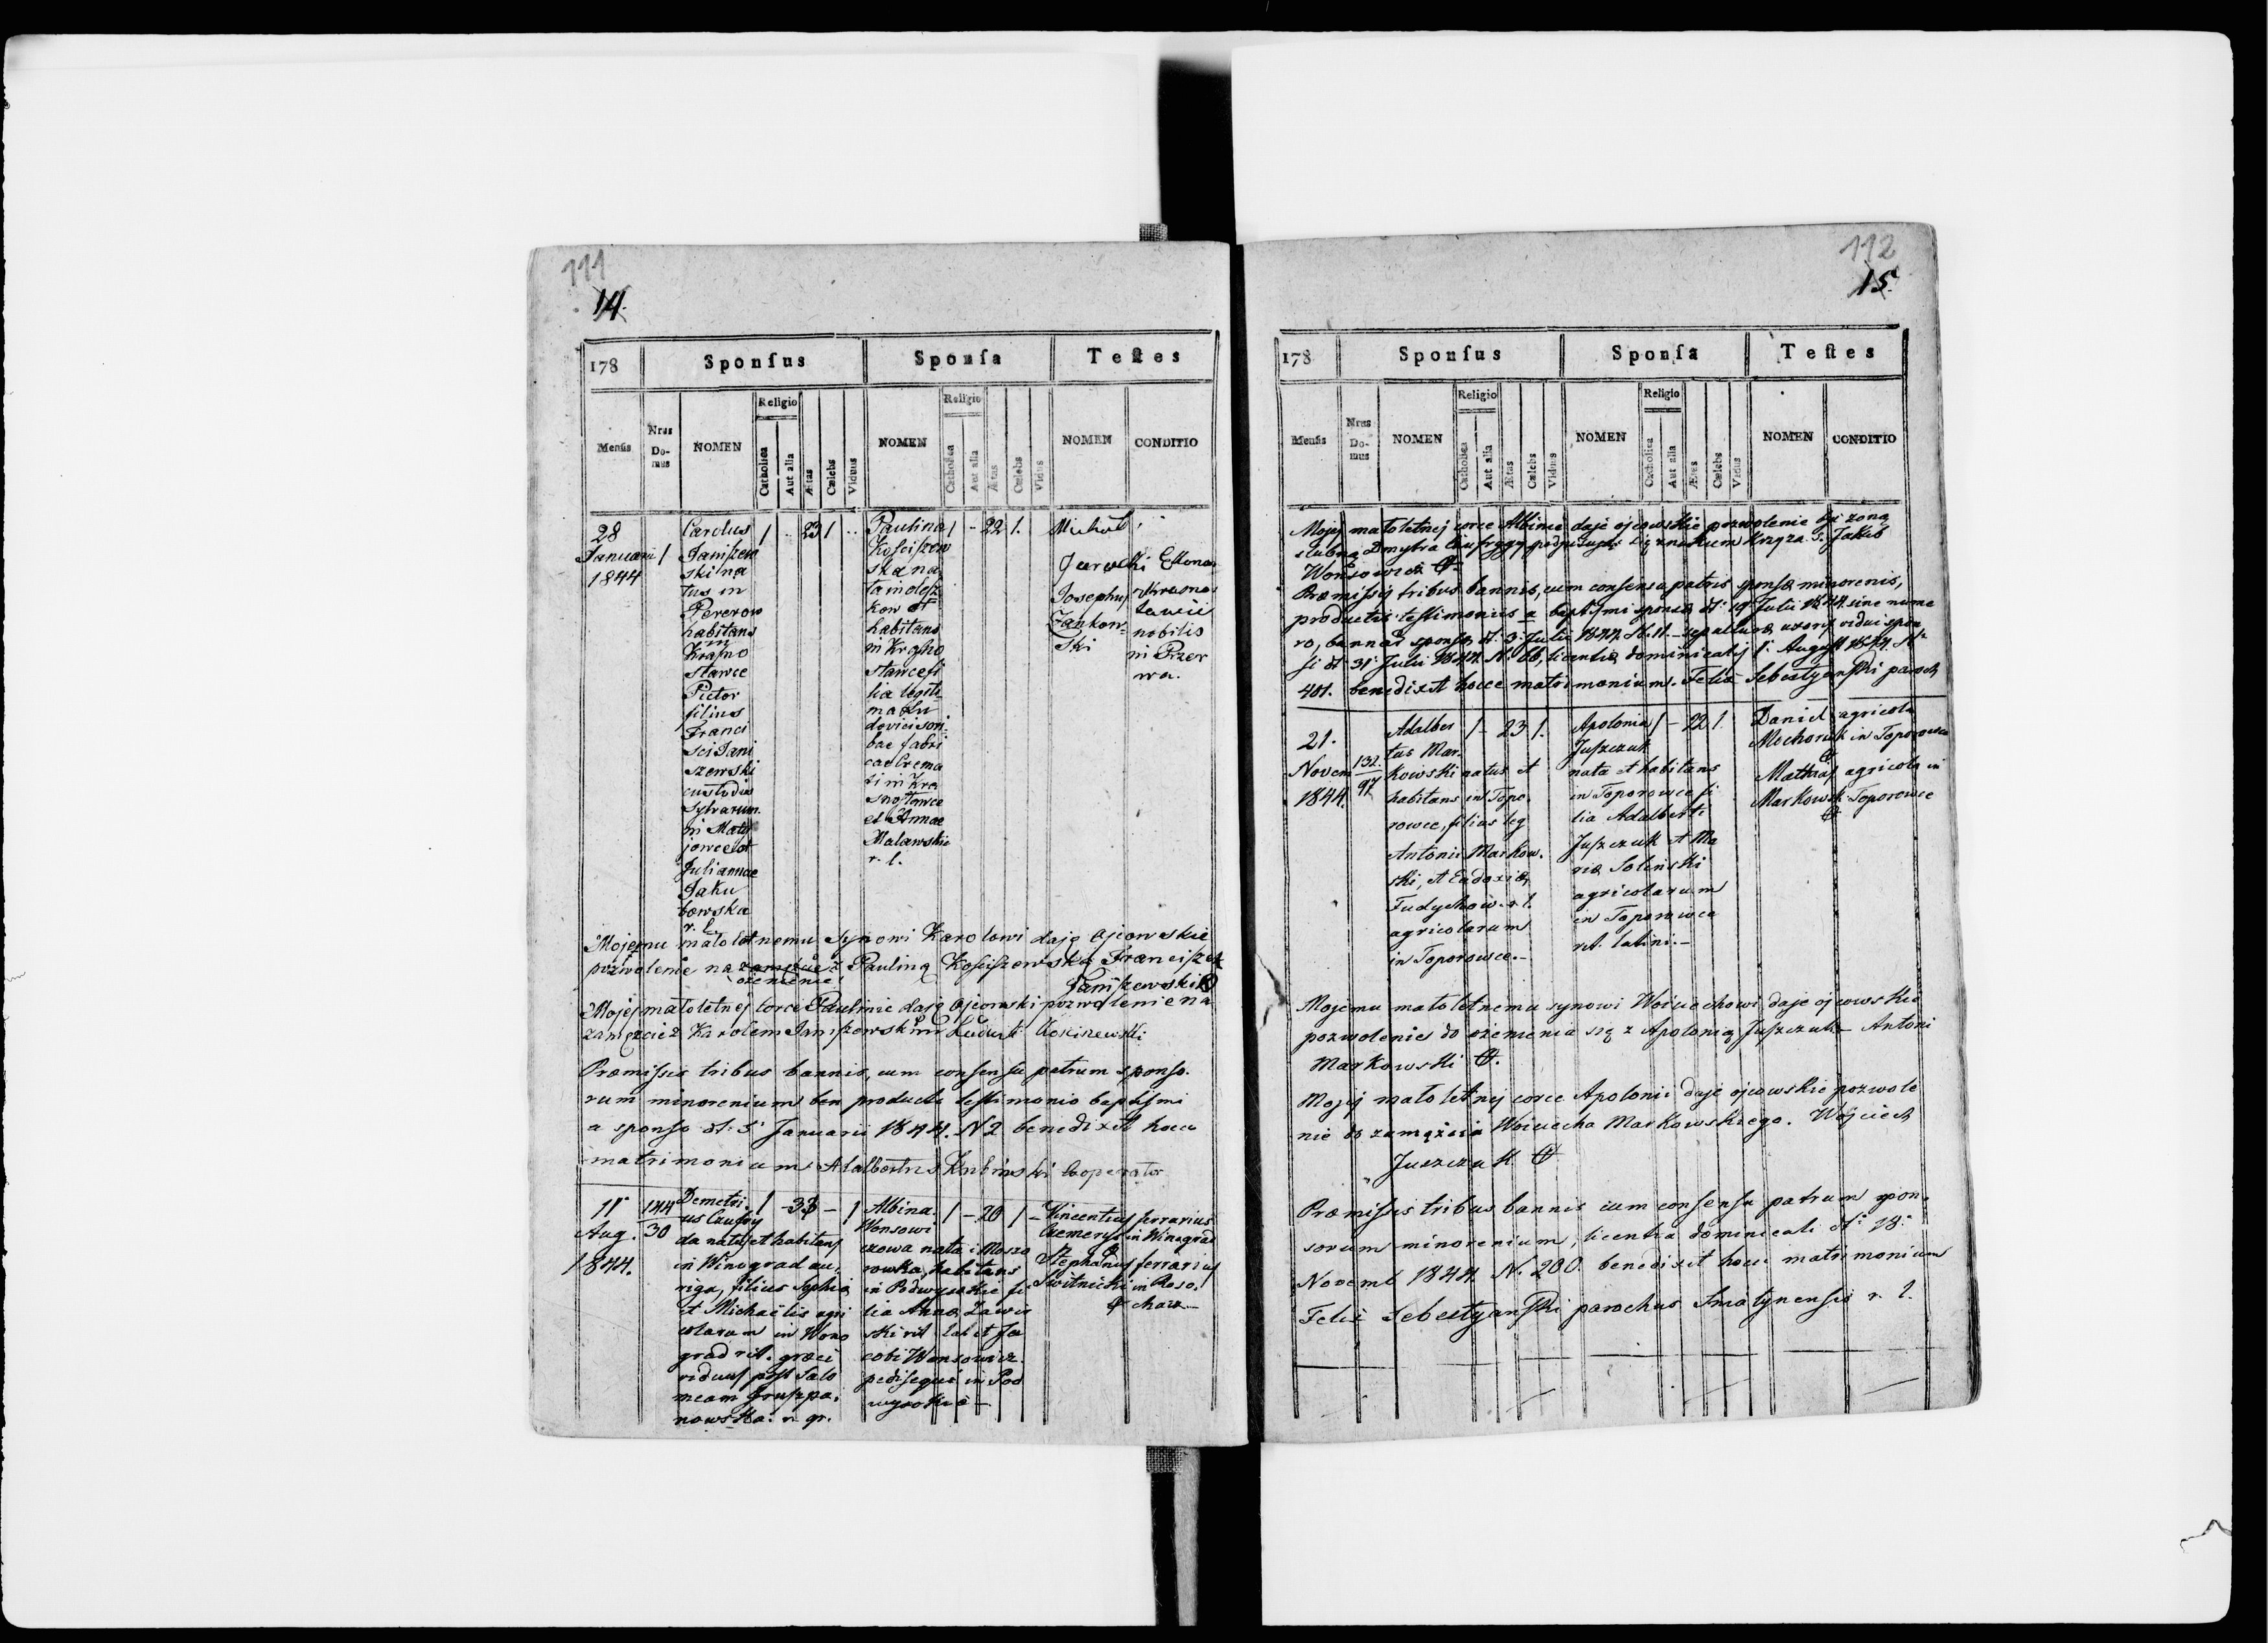 111
14.
178 Sponſus Sponſa Teſtes
Menſis Nrus Domus NOMEN Religio Catholica Aut alia Ætas Cælebs Viduus NOMEN Religio Catholica Aut alia Ætas Cælebs Vidua NOMEN CONDITIO
28
Januarii
1844
1
Carolus
Janiszew
ski na
tus in
Pererow
habitans
in
Krasno
stawce
Pictor
filius
Franci
sci Jani
szewski
custodis
Sylvarum
in Maty
jowce et
Julianae
Jaku
bowska
r. l.
1 .. 23 1 ..
Paulina
Kosciszew
ska na
ta in olesz
kow et
habitans
in Krasno
stawce fi
lia legiti
ma Lu
dovici scri
bae fabri
cae Crema
ti in Kra
snostawce
et Annae
Malawskie
r. l.
1 - 22 1.
Michał
Jurocki Ekonom
Josephus Krasno
stawce
Zankow- nobilis
ski in Przer
wa.
Mojemu małoletnemu Synowi Karolowi daję Ojcowskie
pozwolenie na zamęście z Pauliną Kosciszewską Franciszek
ożenienie
Janiszewski
Mojej małoletnej Corce Paulinie daję Ojcowski pozwolenie na
zamęzcie z Karolem Janiszewskim Ludwik Kosciszewski
Præmissis tribus bannis, cum consensu patrum sponso-
rum minorenium ben producto testimonio baptismi
a sponso dt. 5 Januarii 1844. N 2 benedixit hocce
matrimonium Adalbertus Kubinski Cooperator
11
Aug.
1844.
144
30
Demetri
us Czufry
da natus et habitans
in Winograd au
riga, filius Sophiæ
et Michaëlis agri
colarum in Wino
grad rit. græci
viduus post Salo
meam
nowska. r. gr.
1 - 33 - 1
Albina
Wonsowi
czowa nata i Moszo
rowka, habitans
in Podwysokie fi
lia Annæ Zawis
ski rit lat et Ja
cobi Wonsowicz
pedisequi in Pod
wysokie -
1 - 20 1 -
Vincentius ferrarius
Czemerys in Winograd
Stephanus ferrarius
Switnicki in Roso.
chacz.
112
15.
178 Sponſus Sponſa Teſtes
Menſis Nrus Domus NOMEN Religio Catholica Aut alia Ætas Cælebs Viduus NOMEN Religio Catholica Aut alia Ætas Cælebs Vidua NOMEN CONDITIO
Mojej małoletnej corce Albinie daje ojcowskie pozwolenie być żoną
slubną Dmytra Czufrydy podpisując się znakiem Krzyża. Jakób
Wonsowicz
Præmissis tribus bannis, cum consensu patris sponsæ minorenis,
productis testimoniis a baptismi sponsæ dt: 19 Julii 1844. sine nume
ro, bannor sponsæ dt: 3. Julii 1844 N. 11 - sepulturæ uxoris vidui spon
si dt 31 Julii 1844. N. 66, licentiæ dominicalis 1. Augusti 1844. N
401. benedixit hocce matrimonium. Felix Sebestyański paroch
21.
Novem
1844.
132.
97
Adalber
tus Mar
kowski natus et
habitans in Topo
rowce, filius leg
Antonii Markow.
ski, et Eudoxiæ
Fudychow. r. l.
agricolarum
in Toporowce.-
1 - 23 1.
Apolonia
Juszczuk
nata et habitans
in Toporowce fi
lia Adalberti
Juszczuk et Ma
riæ Solinski
agricolarum
in Toporowce
rit. latini.-
1 - 22 1.
Daniel agricola
Mochoruk in Toporowce
Mathias agricola in
Markowski Toporowce
Mojemu małoletnemu synowi Woiciechowi daje ojcowskie
pozwolenie do ożenienia się z Apolonią Juszczuk Antoni
Markowski
Mojej małoletnej corce Apolonii daje ojcowskie pozwole
nie do zamążcia Woiciecha Markowskiego. Wojciech
Juszczuk
Præmissis tribus bannis cum consensu patrum spon-
sorum minorenium, licentia dominicali dt: 18
Novemb 1844 N. 200. benedixit hocce matrimonium
Felix Sebestyański parochus Sniatynensis r. l.